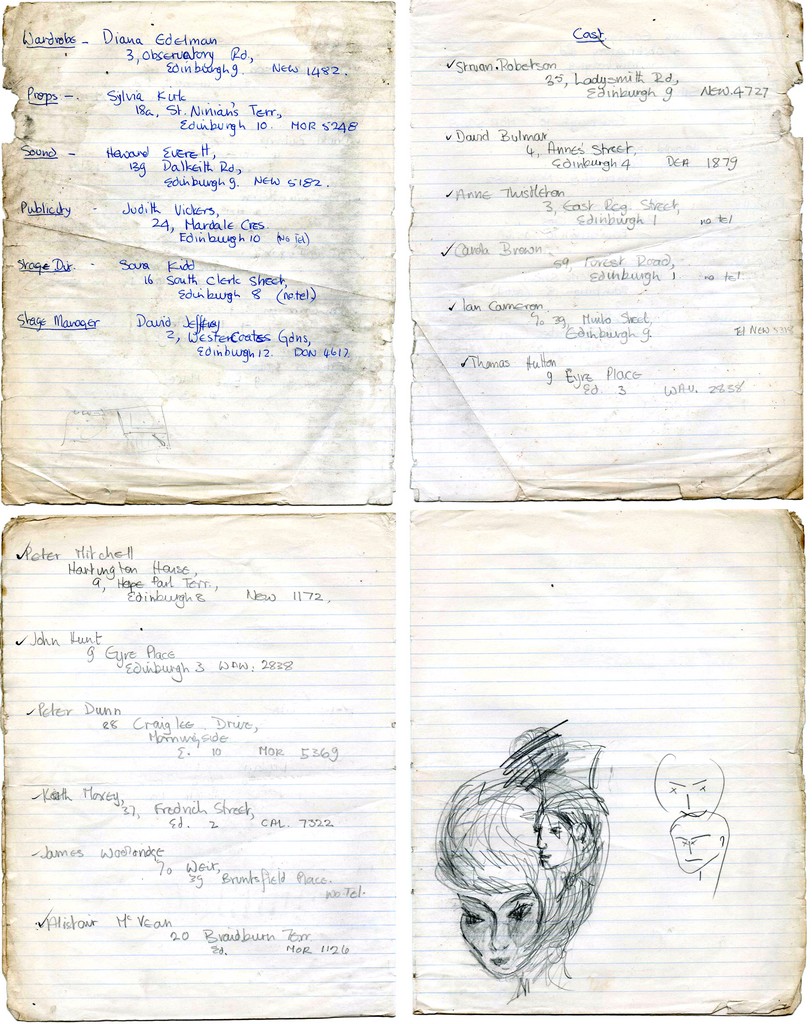 Wardrobe - Diana Edelman
3, Observatory Rd,
Edinburgh 9. NEW 1482.
Props - Sylvia Kirk
18a, St. Ninian's Terr,
Edinburgh 10. MOR 5248
Sound - Howard Everett,
139 Dalkeith Rd,
Edinburgh 9. NEW 5182.
Publicity - Judith Vickers,
24, Mardale Cres.
Edinburgh 10 (No Tel)
Stage Dir. - Sara Kidd
16 South Clerk Street,
Edinburgh 8 (no tel)
Stage Manager David Jeffrey
2, Wester Coates Gdns,
Edinburgh 12. DON 4617.
Cast
Struan Robertson
35, Ladysmith Rd,
Edinburgh 9 NEW. 4727
David Bulmar
4, Annes' Street,
Edinburgh 4 DEA 1879
Anne Thistleton
3, East Reg. Street,
Edinburgh 1 no tel
Carola Brown
59, Forest Road,
Edinburgh 1 no tel.
Ian Cameron
c/o 39, Street,
Edinburgh 9. Tel NEW
Thomas Hutton
9 Eyre Place
Ed. 3 WAV. 2838
Peter Mitchell
Hartington House,
9, Hope Park Terr.,
Edinburgh 8 NEW 1172.
John Hunt
9 Eyre Place
Edinburgh 3 WAV. 2838
Peter Dunn
28 Craiglee Drive,
Morningside
E. 10 MOR 5369
Keith Moxey,
37, Fredrich Street,
Ed. 2 CAL. 7322
James
c/o Weir,
39 Bruntsfield Place.
no Tel.
Alistair McVean
20 Braidburn Terr
Ed. MOR 1126